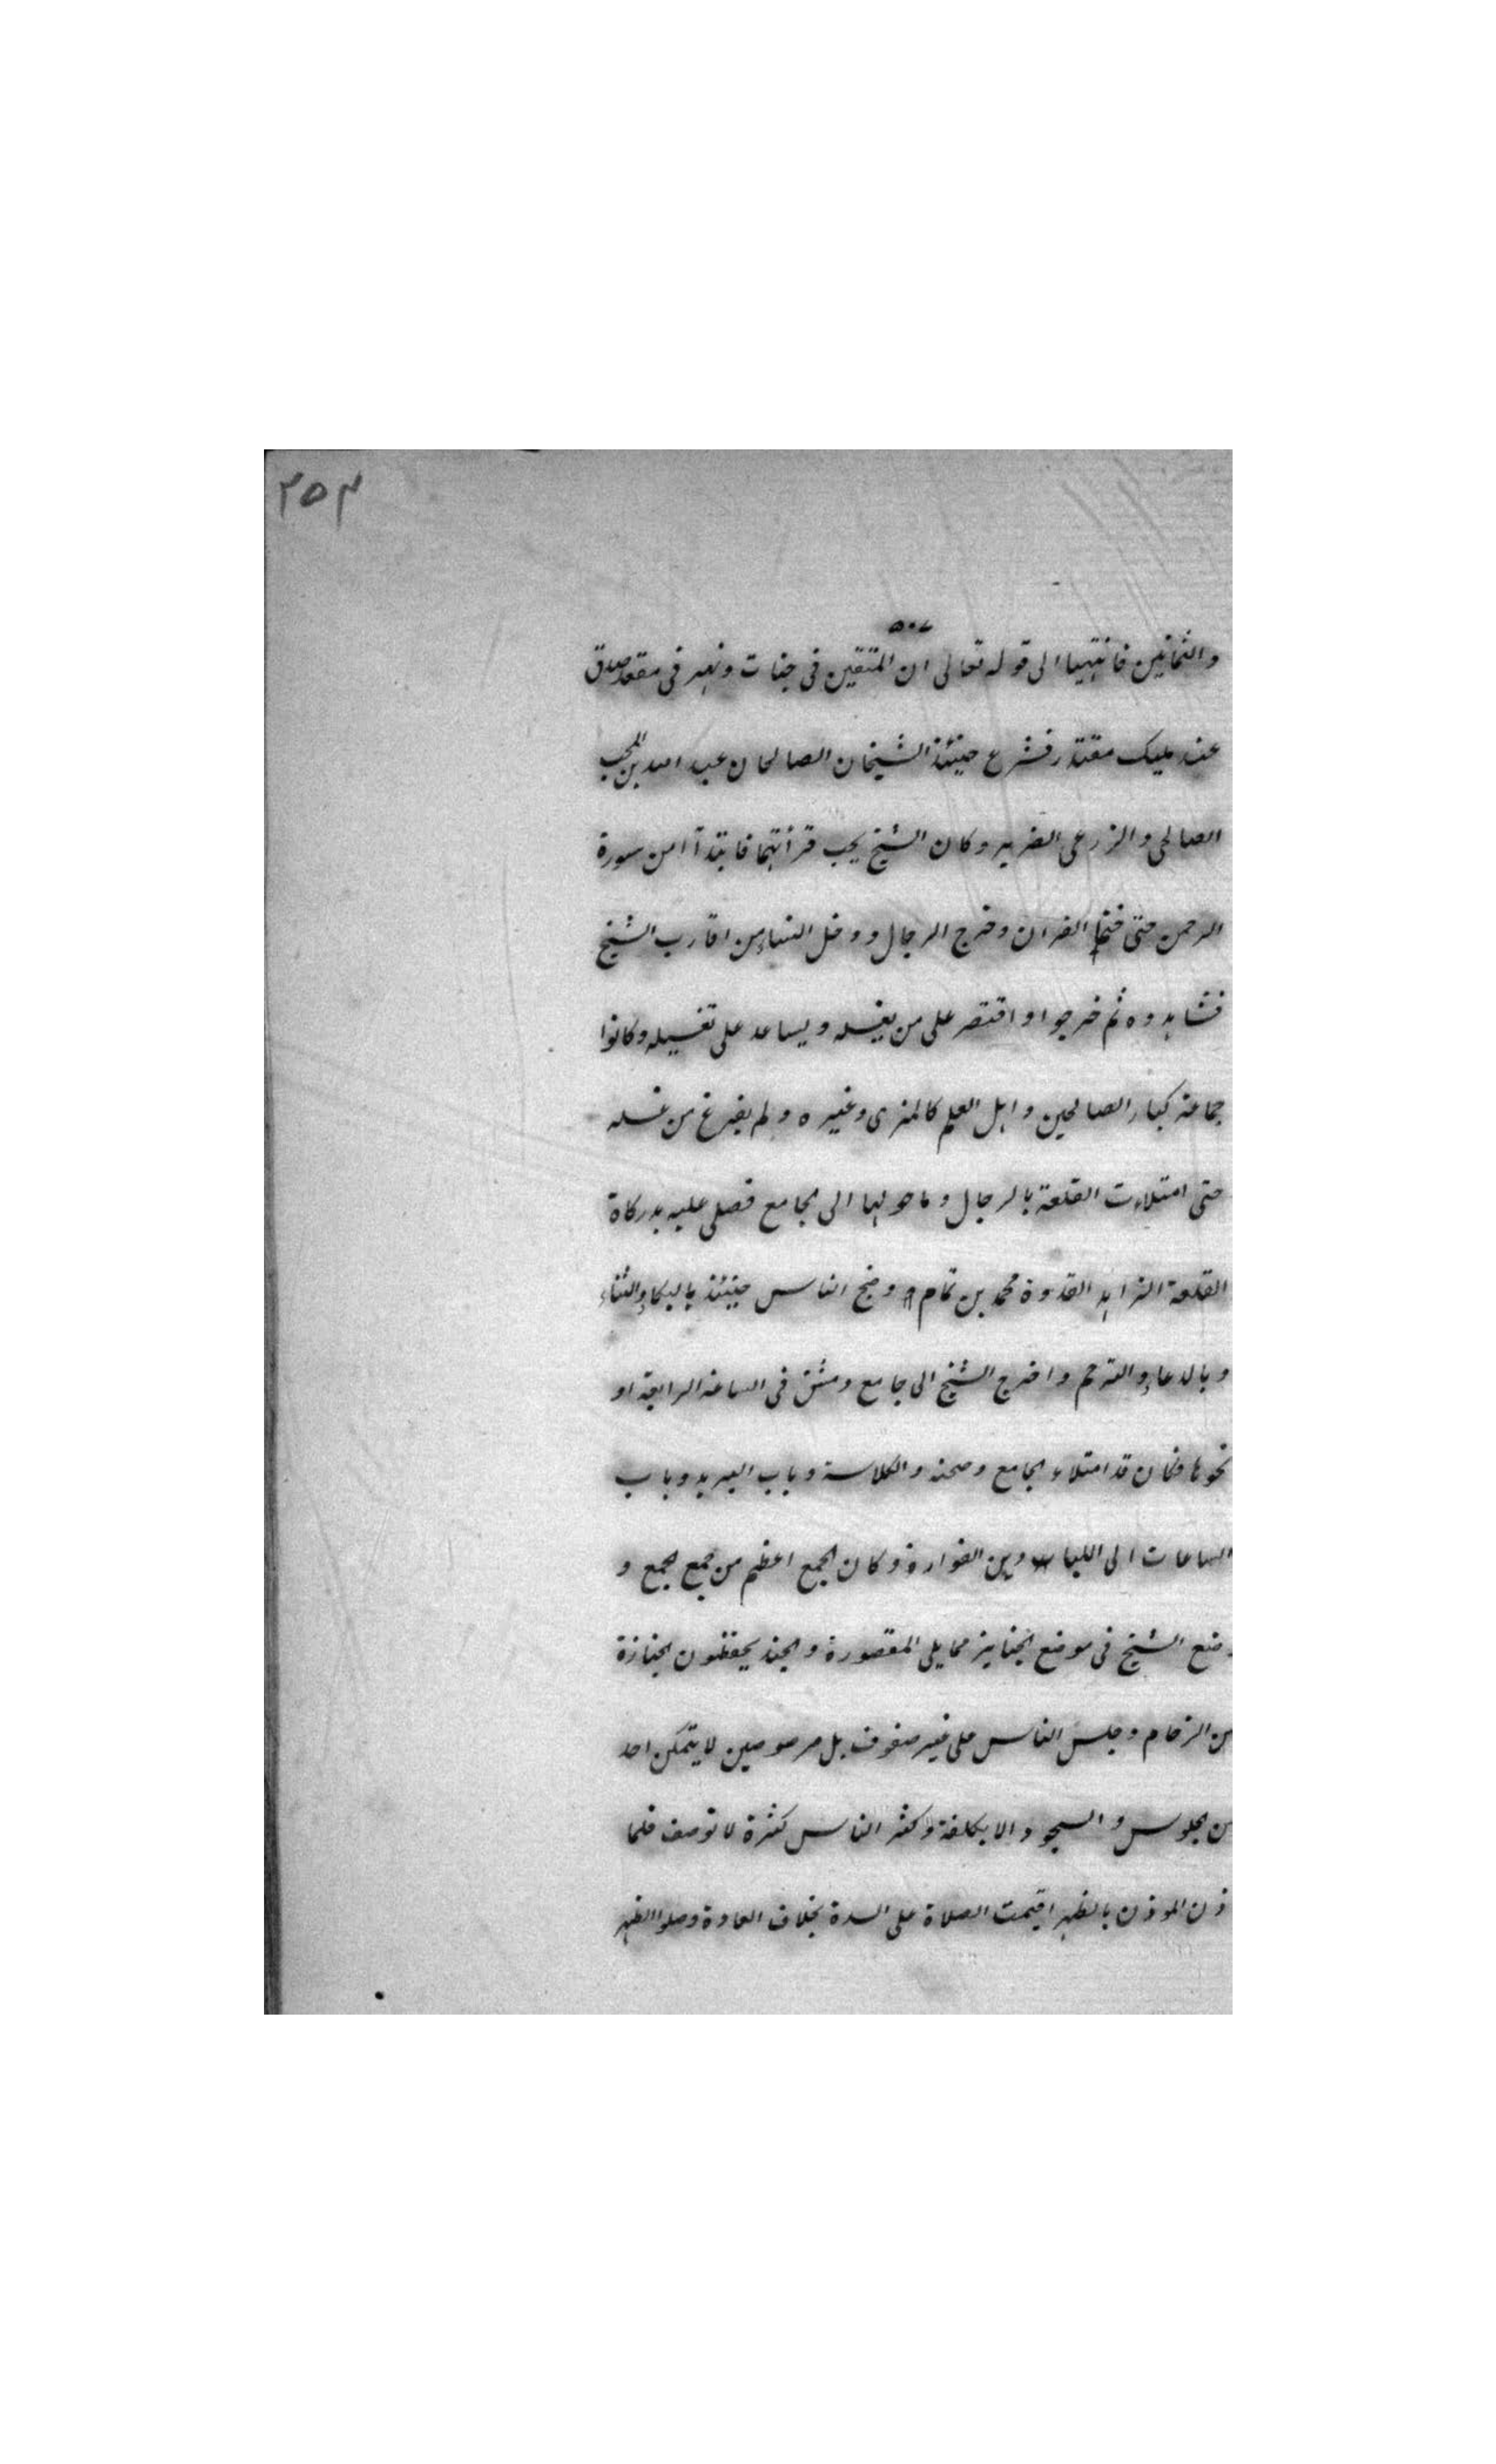 ٢٥٣
٥٠٧
والثمانين فانتهيا الى قوله تعالى ان المتقين فى جنات ونهر فى مقعد صدق
عند مليك مقتدر فشرع حينئذ الشيخان الصالحان عبد الله بن المحب
الصالحى والزرعى الضرير وكان الشيخ يحب قرأتهما فابتدآ امن سورة
الرحمن حتى ختما القران وخرج الرجال ودخل النساء من اقارب الشيخ
فشاهدوه ثم خرجوا واقتصر على من يغسله ويساعد على تغسيله وكانوا
جماعة كبار الصالحين واهل العلم كالمزى وغيره ولم يفرغ من غسله
حتى امتلاءت القلعة بالرجال وما حولها الى الجامع فصلى عليه بدركاة
القلعة الزاهد القدوة محمد بن تمام وضج الناس حينئذ بالبكاء والثناء
وبالدعاء والترحم واخرج الشيخ الى جامع دمشق فى الساعة الرابعة او
نحوها وكان قد امتلاء الجامع وصحنه والكلاسة وباب البريد وباب
الساعات الى اللبادين الفوارة وكان الجمع اعظم من جمع الجمع و
وضع الشيخ فى موضع الجنايز مما يلى المقصورة والجند يحفظون الجنازة
من الزحام وجلس الناس على غير صفوف بل مرصوصين لا يتمكن احد
من الجلوس والسجود الا بكلفة وكثر الناس كثرة لا توصف فلما
ذن الموذن بالظهر اقيمت الصلاة على السدة بخلاف العادة وصلوا الظهر